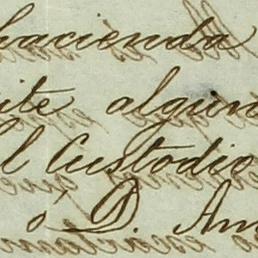 hacienda
ite algun
l Custodio
o D. Am